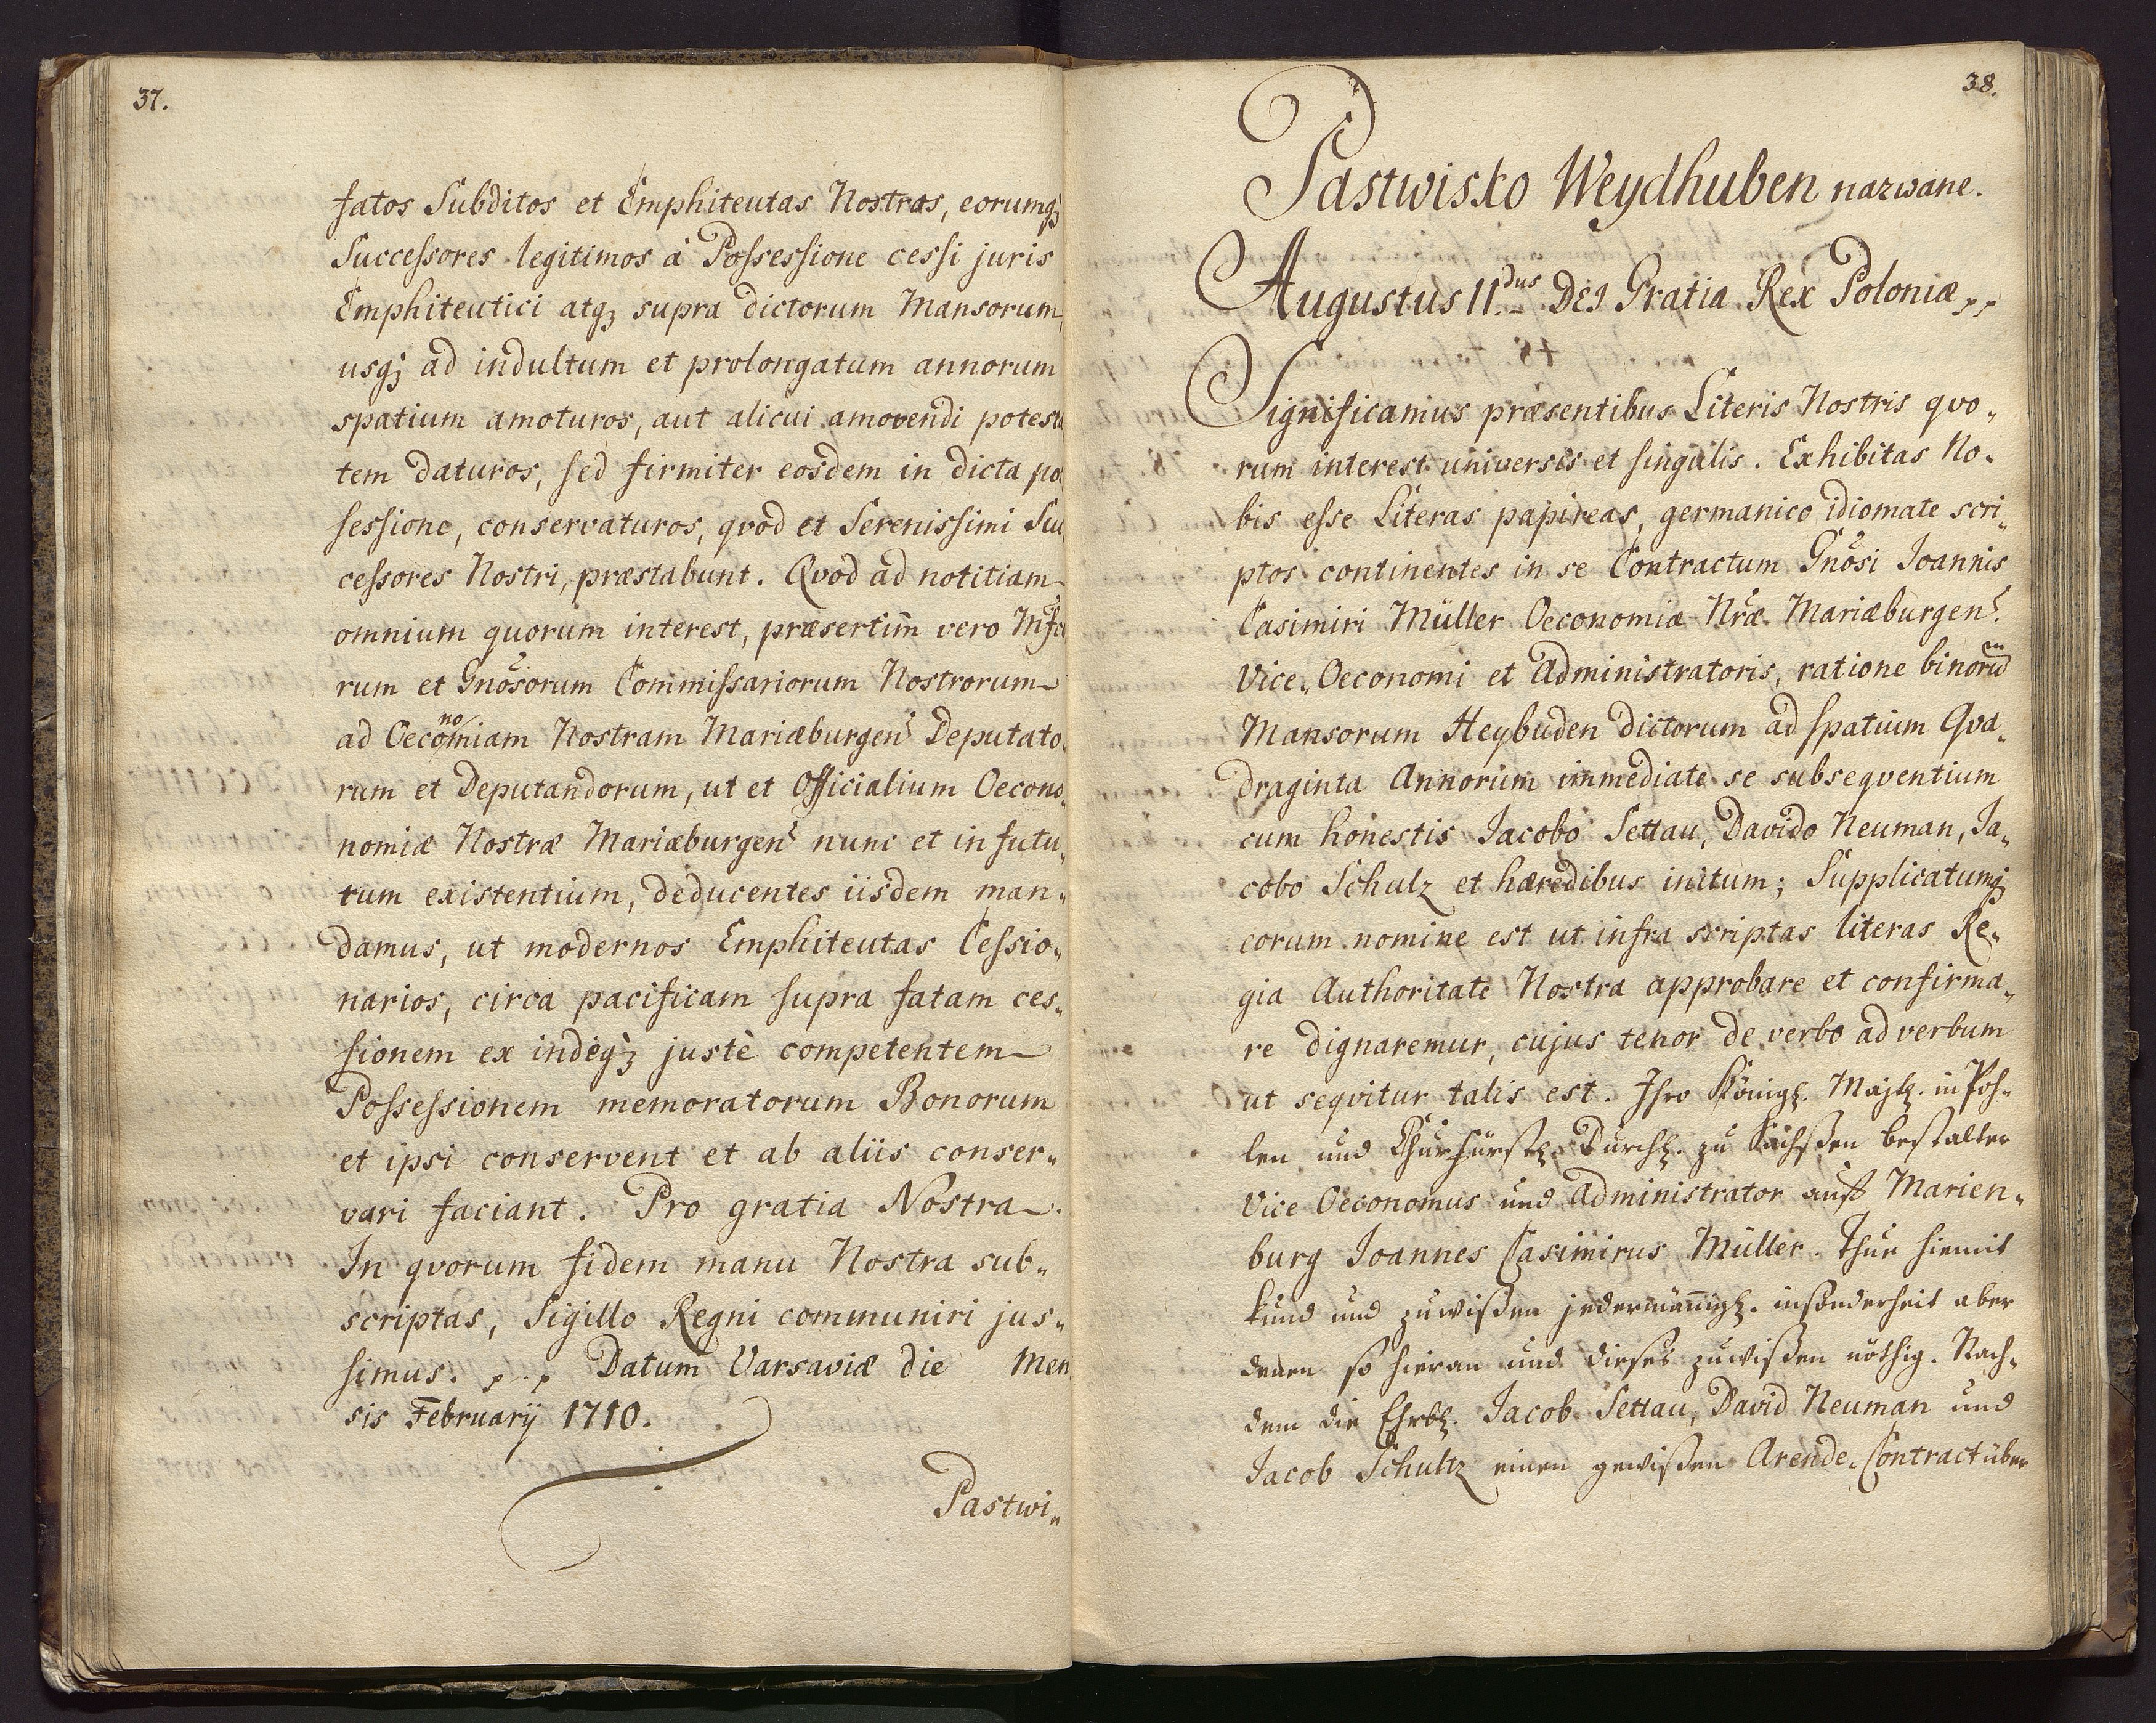 37.
fatos Subditos et Emphiteutas Nostros, eorumq;
Successores legitimos à Possessione cessi juris
Emphiteutici atq; supra dictorum Mansorum,
usq; ad indultum et prolongatum annorum
spatium amoturos, aut alicui amovendi potesta
tem daturos, sed firmiter eosdem in dicta po
sessione, conservaturos, qvod et Serenissimi Suc
cessores Nostri, præstabunt. Qvod ad notitiam
omnium quorum interest, præsertim vero
rum et Gnosorum Commissariorum Nostrorum
ad Oeconomiam Nostram Mariæburgens Deputato
rum et Deputandorum, ut et Officialium Oecono
nomiæ Nostræ Mariæburgens nunc et in futu„
rum existentium, deducentes iisdem man„
damus, ut modernos Emphiteutas Cessio„
narios, circa pacificam supra fatam ces„
sionem ex indeq; justè competentem
Possessionem memoratorum Bonorum
et ipsi conservent et ab aliis conser„
vari faciant. Pro gratia Nostra.
In qvorum fidem manu Nostra sub„
scriptas, Sigillo Regni communiri jus„
simus. Datum Varsaviæ die Men
sis Februarÿ 1710.
Pastwi„
38.
Pastwisko Weydhuben nazwane.
Augustus II.dus DEI Gratia Rex Poloniæ
Significamus præsentibus Literis Nostris qvo„
rum interest universis et singulis. Exhibitas No„
bis esse Literas papireas, germanico idiomate scri„
ptos continentes in se Contractum Gnosi Joannis
Casimiri Müller Oeconomiæ Nræ Mariæburgens.
Vice„Oeconomi et Administratoris, ratione binorum
Mansorum Heybuden dictorum ad spatium Qva„
draginta Annorum immediate se subseqventium
cum honestis Jacobo Settau, Davido Neuman, Ja„
cobo Schulz et hæredibus initum; Supplicatumq;
eorum nomine est ut infra scriptas literas Re„
gia Authoritate Nostra approbare et confirma„
re dignaremur, cujus tenor de verbo ad verbum
ut seqvitur talis est. Ihro Königl. Maytt. in Poh„
len und Churfürstl. Durchl. zu Sachßen bestalter
Vice Oeconomus und Administrator auff Marien„
burg Joannes Casimirus Müller. Thue hiemit
kund und zuwißen jedermännigl. insonderheit aber
denen so hieran und dieses zuwißen nöthig. Nach„
dem die Ehrbl. Jacob Settau, David Neuman und
Jacob Schultz einen gewißen Arende„Contract über